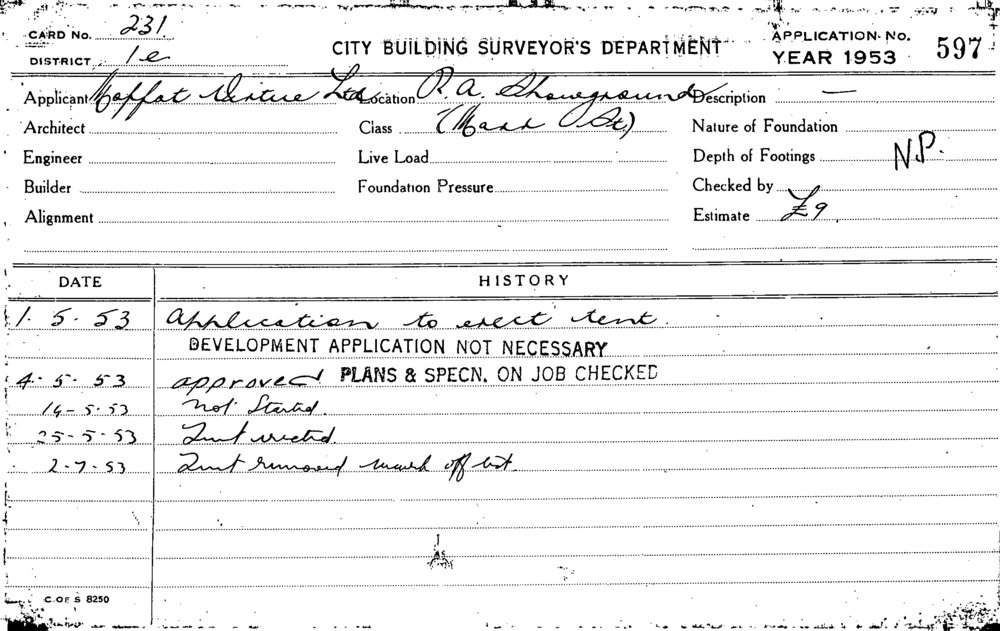 CARD No. 231
DISTRICT 1e
CITY BUILDING SURVEYOR'S DEPARTMENT
APPLICATION No. 597
YEAR 1953
Applicant Moffat Virtue Ltd Location R.A. Showground Description —
Architect Class (Mark St) Nature of Foundation
Engineer Live Load Depth of Footings N.P.
Builder Foundation Pressure Checked by
Alignment Estimate £9
DATE HISTORY
1. 5. 53 Application to erect tent.
DEVELOPMENT APPLICATION NOT NECESSARY
4. 5. 53 approved PLANS & SPECN. ON JOB CHECKED
14-5-53 Not Started.
25-5-53 Tent erected.
2-7-53 Tent removed mark off list.
C. OF S 8250